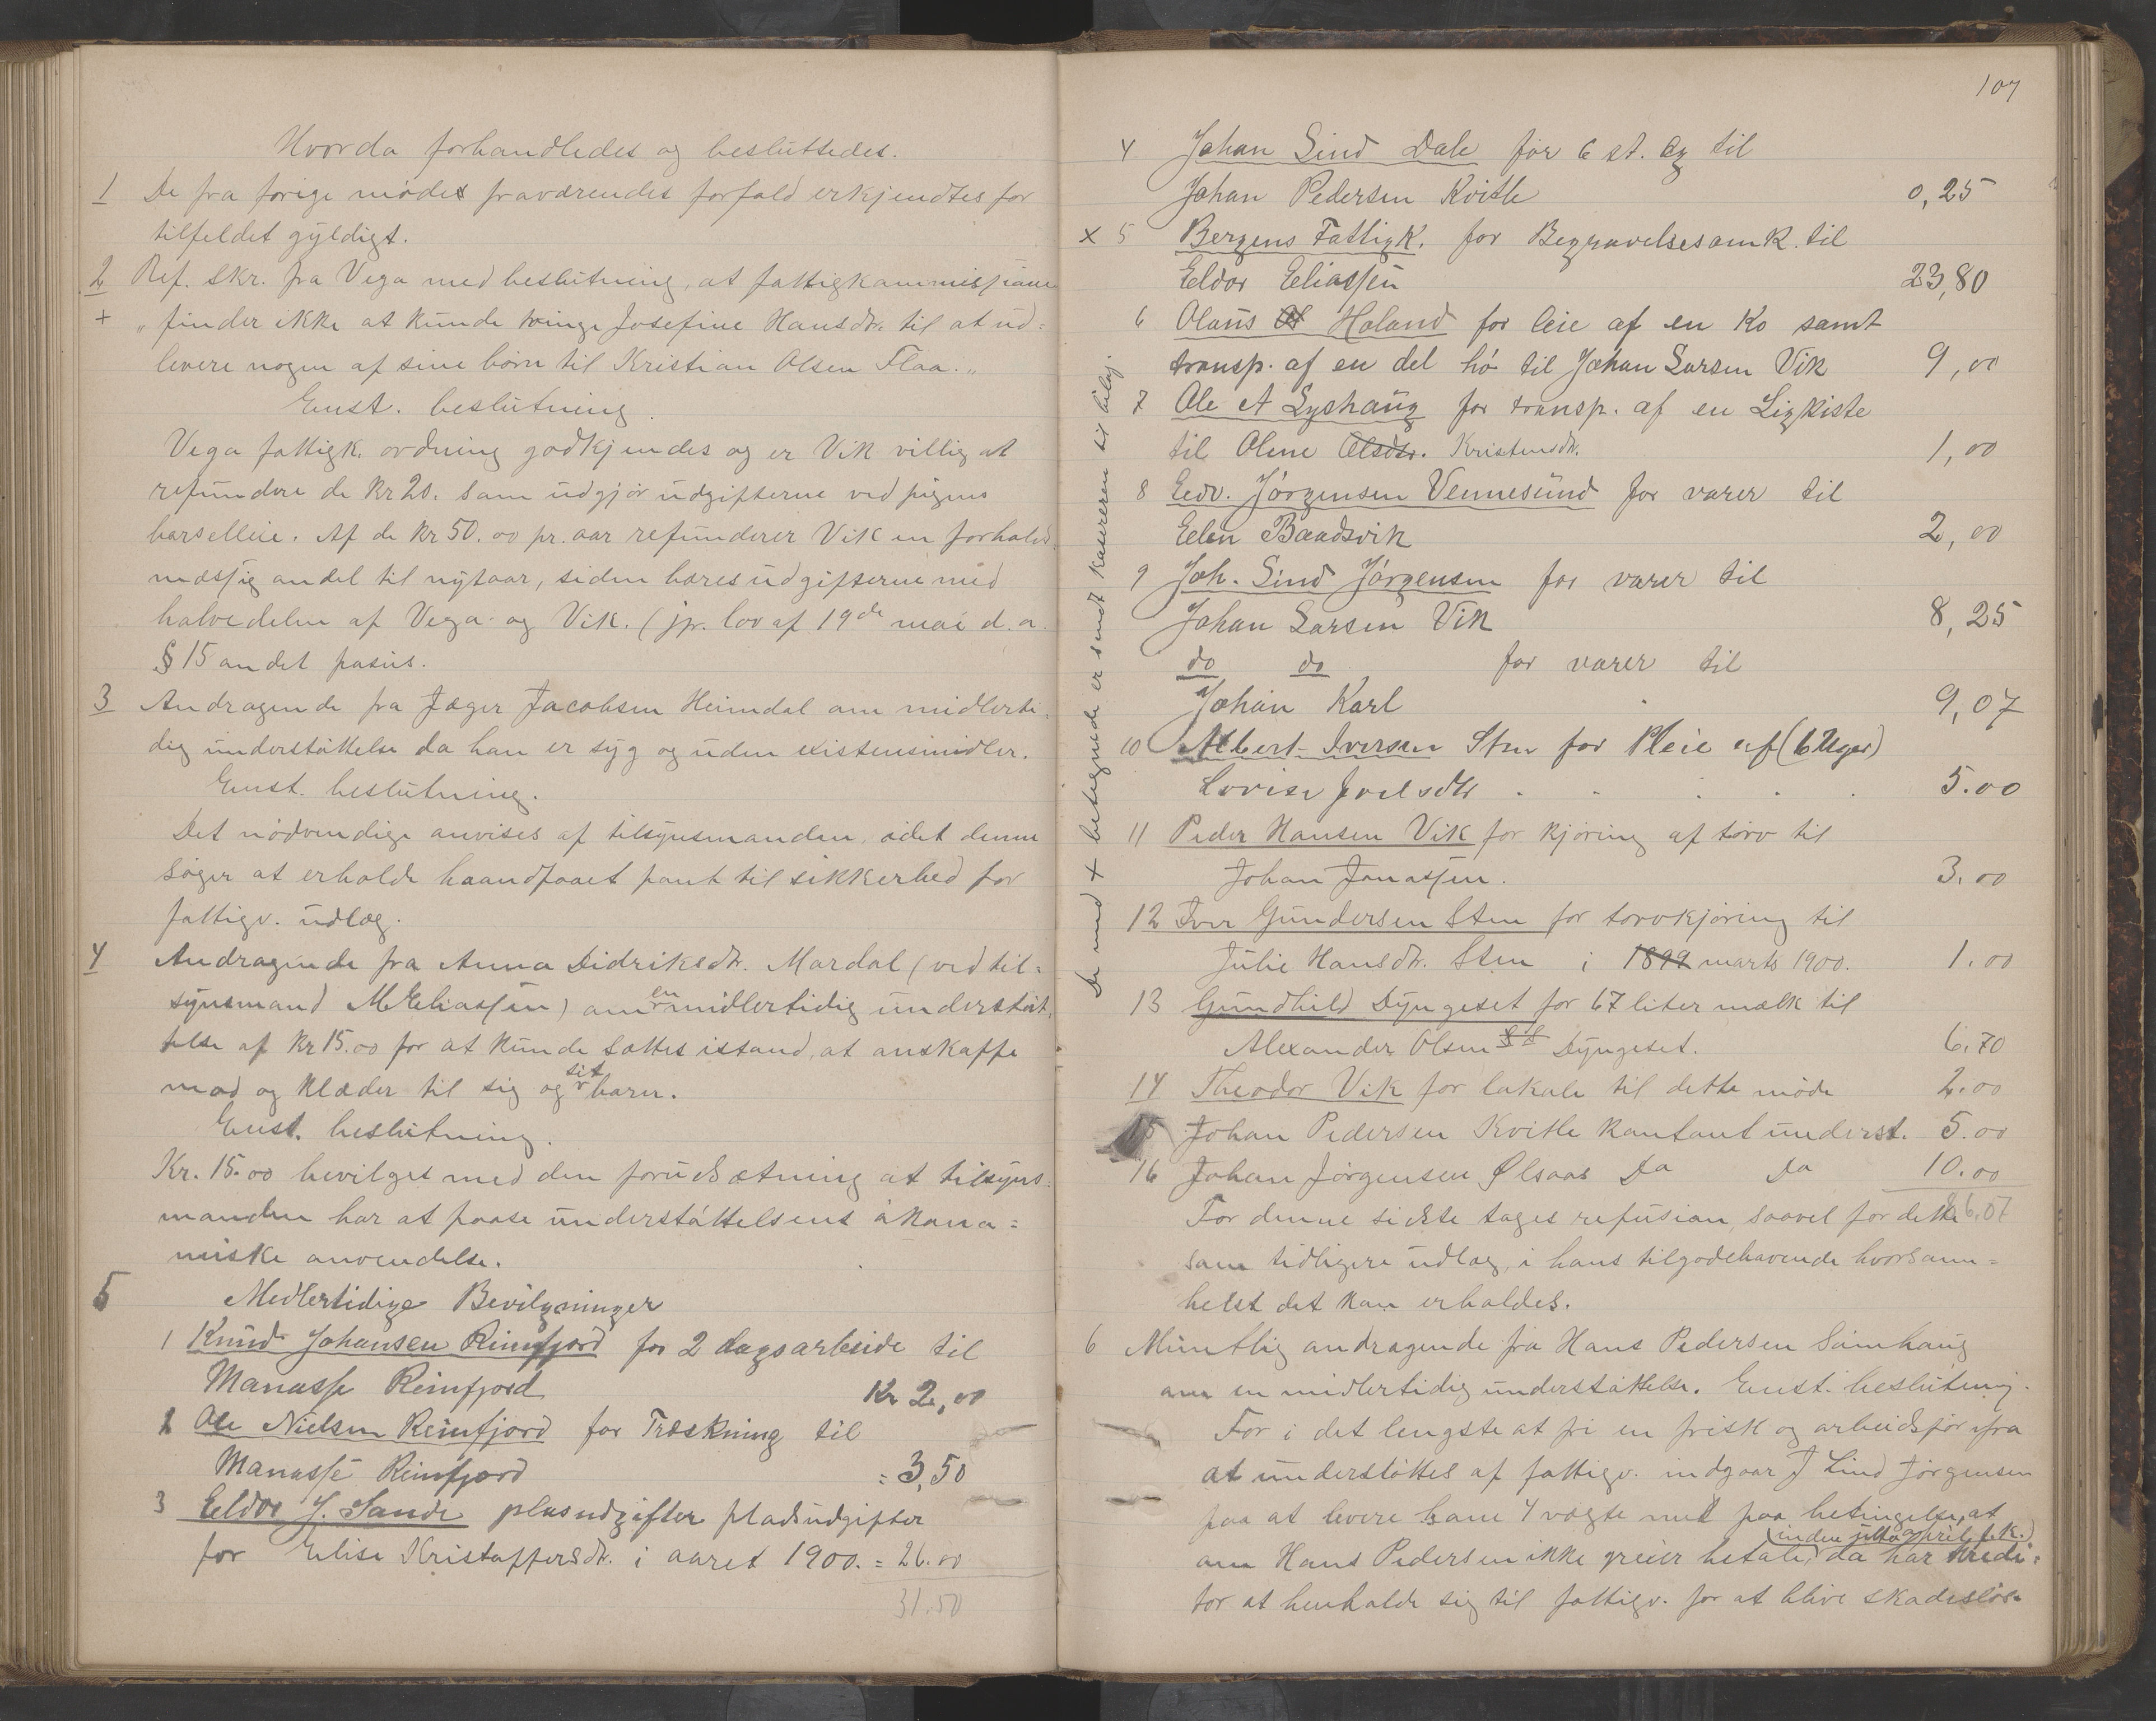 Hvorda forhandledes og besluttedes.
1 De fra forige mødet fraværendes forfald erkjendtes for
tilfeldet gyldigt.
2 Ref. skr. fra Vega med beslutning, at fattigkommissionen
+ „finder ikke at kunde tvinge Josefine Hansdtr. til at ud=
levere nogen af sine børn til Kristian Olsen Flaa.„
Enst. beslutning.
Vega fattigk. ordning godkjendes og er Vik villig at
refundere de kr 20. som udgjør udgifterne ved pigens
barselleie. Af de kr 50.00 pr. aar refunderer Vik en forholds
mæssig andel til nytaar, siden bæres udgifterne med
halvedelen af Vega og Vik. (jvr. lov af 19de mai d.a.
§ 15 andet pasus.
3 Andragende fra Jæger Jacobsen Heimdal om midlerti=
dig understøttelse da han er syg og uden existensmidler.
Enst. beslutning.
Det nødvendige anvises af tilsynsmanden, idet denne
søger at erholde haandfaaet pant til sikkerhed for
fattigv. udlæg.
4 Andragende fra Anna Didriksdtr. Mardal (ved til=
synsmand M Eliassen) om en midlertidig understøt=
telse af kr 15.00 for at kunde sættes istand at anskaffe
mad og klæder til sig og sit barn.
Enst. beslutning.
Kr. 15.00 bevilget med den forudsætning at tilsyns=
manden har at paase understøttelsens økono=
miske anvendelse.
5 Medlertidige Bevilgninger
1 Knud Johansen Reinfjord for 2 dagsarbeide til
Manasse Reinfjord Kr 2,00
2 Ole Nielsen Reinfjord for Træskning til
Manasse Reinfjord = 3,50
3 Eldor J. Sande plasudgifter pladsudgifter
for Elise Kristoffersdtr. i aaret 1900. = 26.00
31.50
107
4 Johan Lind Dale for 6 st. Æg til
Johan Pedersen Kvitle 0,25
x 5 Bergens Fattigk. for Begravelsesomk. til
Eeldor Eeliassen 23,80
6 Olaus Holand for leie af en Ko samt
transp. af en del hø til Johan Larsen Vik 9,00
7 Ole A Lyshaug for transp. af en Ligkiste
til Oline Olsdtr. Kristensdtr. 1,00
8 Eedv. Jørgensen Vennesund for varer til
Eelen Baadsvik 2,00
9 Joh. Lind Jørgensen for varer til
Johan Larsen Vik 8,25
do do for varer til
Johan Karl 9,07
10 Albert Iversen Sten for Pleie af (6 Uger)
Lovise Joelsdtr 5.00
11 Peder Hansen Vik for kjøring af torv til
Johan Jonassen. 3.00
12 Iver Gundersen Sten for torvkjøring til
Julie Hansdtr. Sten i 1899 marts 1900. 1.00
13 Gundhild Dyngeset for 67 liter mælk til
Alexander Olsen Dyngeset. 6.70
14 Theodor Vik for lokale til dette møde 2.00
15 Johan Pedersen Kvitle kontant underst. 5.00
16 Johan Jørgensen Ølsaas Do Do 10.00
86,07
For denne sidste tages refusion, saavel for dette
som tidligere udlæg, i hans tilgodehavende hvorsom=
helst det kan erholdes.
6 Muntlig andragende fra Hans Pedersen Sømhaug
om en midlertidig understøttelse. Enst. beslutning.
For i det lengste at fri en frisk og arbeidsfør fra
at understøttes af fattigv. indgaar J Lind Jørgensen
paa at levere ham 4 vægte mel paa betingelse, at
(inden juttg april f.k.)
om Hans Pedersen ikke greier betale, da har kredi=
tor at henholde sig til fattigv. for at blive skadesløs.
De med + betegnede er sendt kassereren til bilag.